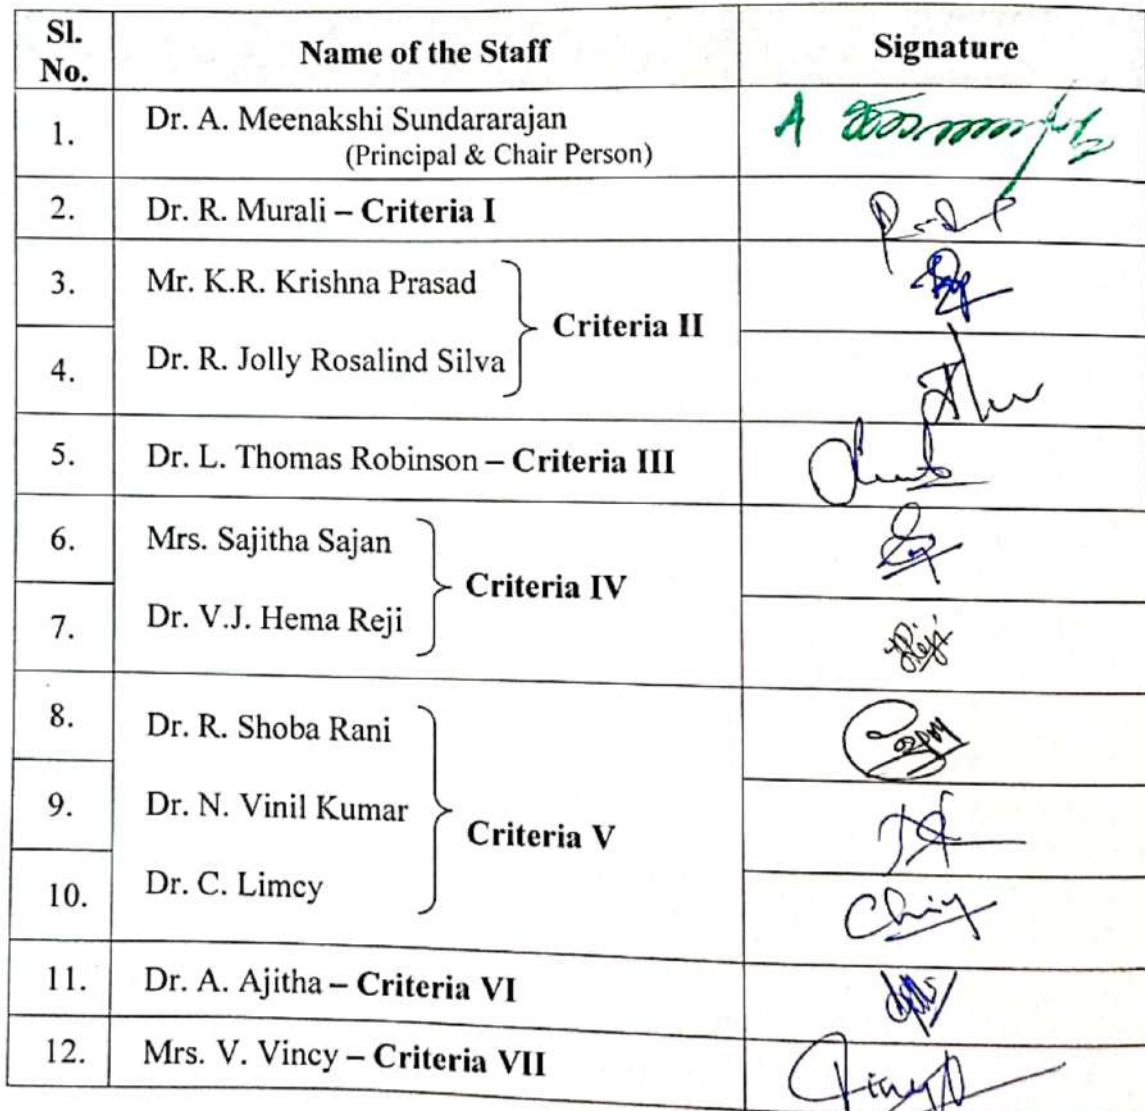 Sl. No. Name of the Staff Signature
1. Dr. A. Meenakshi Sundararajan
(Principal & Chair Person)
2. Dr. R. Murali – Criteria I
3. Mr. K.R. Krishna Prasad
Criteria II
4. Dr. R. Jolly Rosalind Silva
5. Dr. L. Thomas Robinson – Criteria III
6. Mrs. Sajitha Sajan
Criteria IV
7. Dr. V.J. Hema Reji
8. Dr. R. Shoba Rani
9. Dr. N. Vinil Kumar
Criteria V
10. Dr. C. Limcy
11. Dr. A. Ajitha – Criteria VI
12. Mrs. V. Vincy – Criteria VII